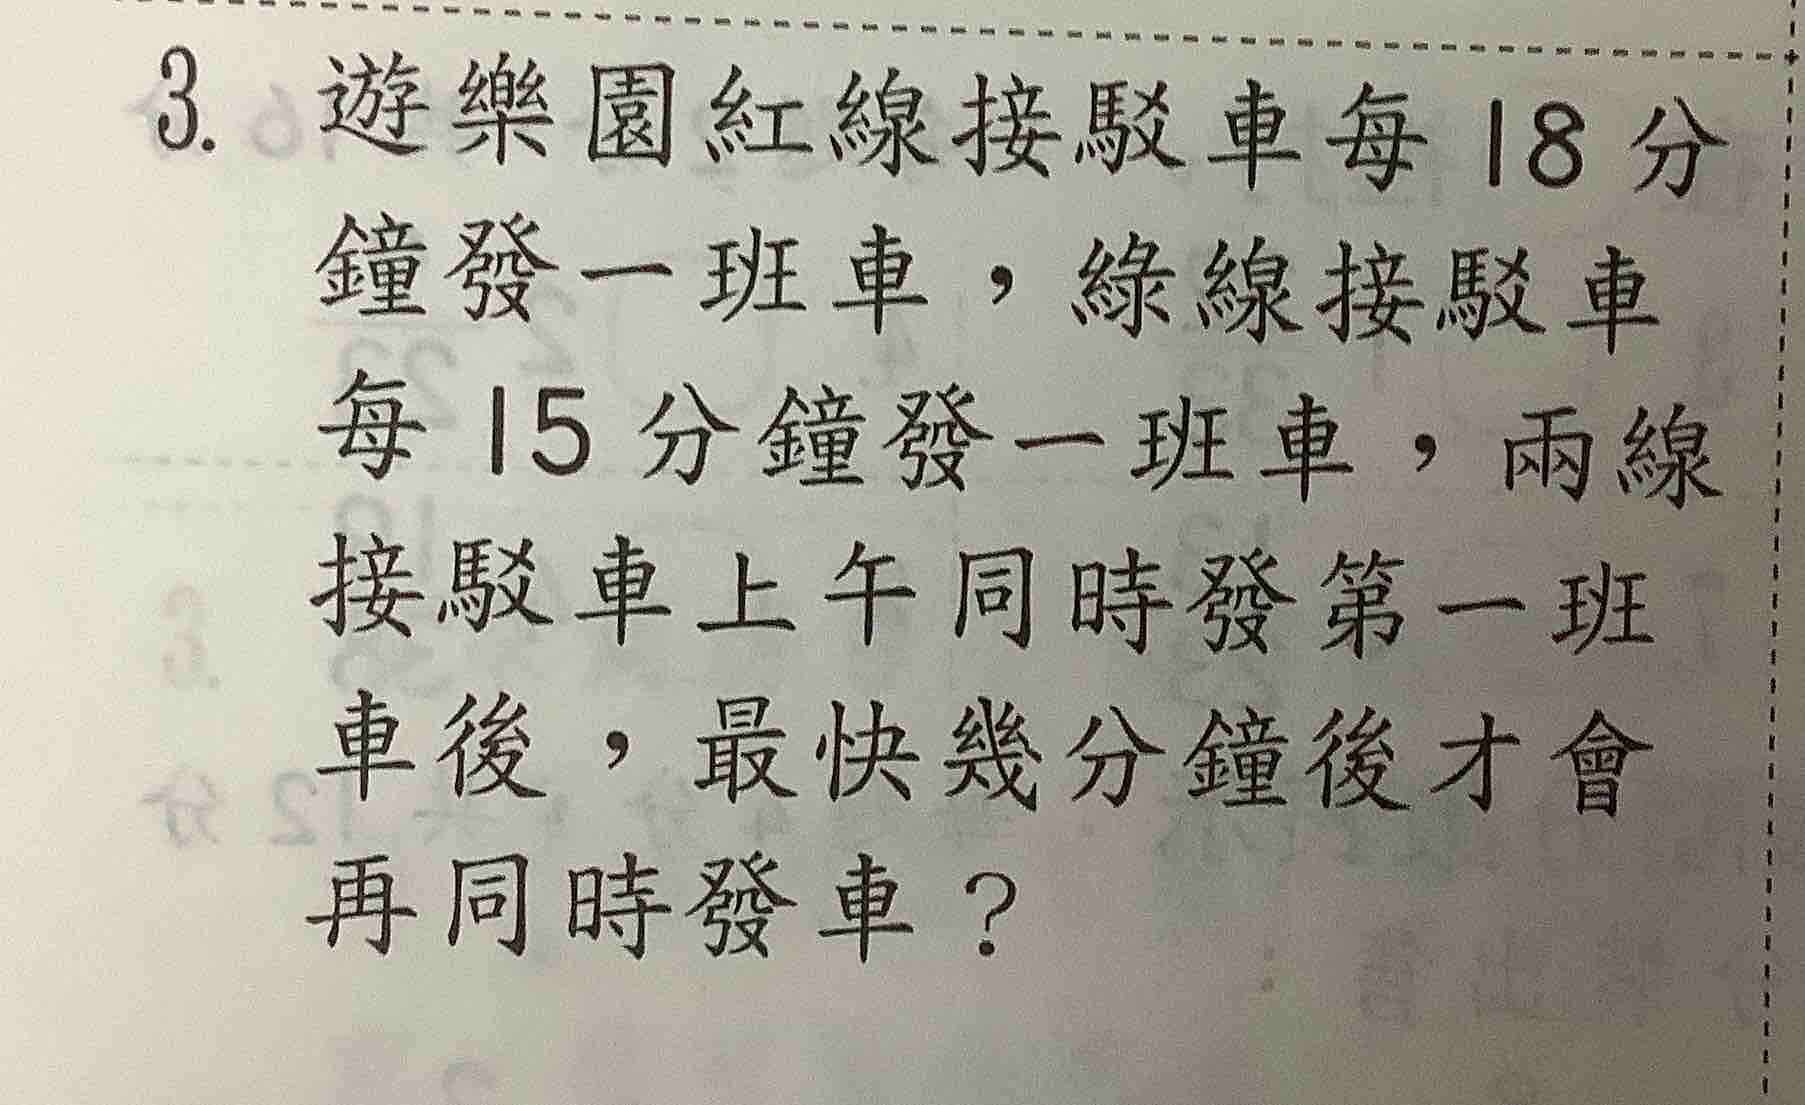 3. 遊樂園紅線接駁車每 18 分
鐘發一班車，綠線接駁車
每 15 分鐘發一班車，兩線
接駁車上午同時發第一班
車後，最快幾分鐘後才會
再同時發車？